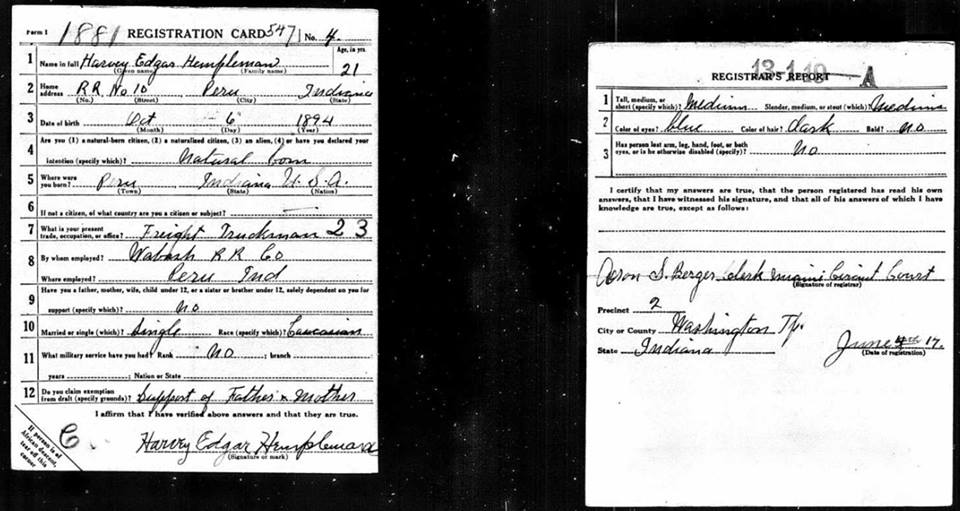 Form 1 1881 REGISTRATION CARD 547 No. 4.
1 Name in full Harvey Edgar Hempleman Age, in yrs. 21
(Given name) (Family name)
2 Home address R.R. No 10 Peru Indiana
(No.) (Street) (City) (State)
3 Date of birth Oct 6 1894
(Month) (Day) (Year)
4 Are you (1) a natural-born citizen, (2) a naturalized citizen, (3) an alien, (4) or have you declared your
intention (specify which)? Natural Born
5 Where were you born? Peru Indiana U.S.A.
(Town) (State) (Nation)
6 If not a citizen, of what country are you a citizen or subject?
7 What is your present trade, occupation, or office? Freight Truckman 23
8 By whom employed? Wabash R R Co
Where employed? Peru Ind
9 Have you a father, mother, wife, child under 12, or a sister or brother under 12, solely dependent on you for
support (specify which)? No
10 Married or single (which)? Single Race (specify which)? Caucasian
11 What military service have you had? Rank No ; branch
years ; Nation or State
12 Do you claim exemption from draft (specify grounds)? Support of Father & Mother
I affirm that I have verified above answers and that they are true.
C.
Harvey Edgar Hempleman
(Signature or mark)
If person is of
African descent,
tear off this
corner
REGISTRAR'S REPORT A
1 Tall, medium, or short (specify which)? Medium Slender, medium, or stout (which)? Medium
2 Color of eyes? blue Color of hair? dark Bald? No
3 Has person lost arm, leg, hand, foot, or both
eyes, or is he otherwise disabled (specify)? No
I certify that my answers are true, that the person registered has read his own
answers, that I have witnessed his signature, and that all of his answers of which I
have knowledge are true, except as follows:
S. Berger Clerk Miami Circuit Court
(Signature of registrar)
Precinct 2
City or County Washington Tp.
State Indiana June 17.
(Date of registration)